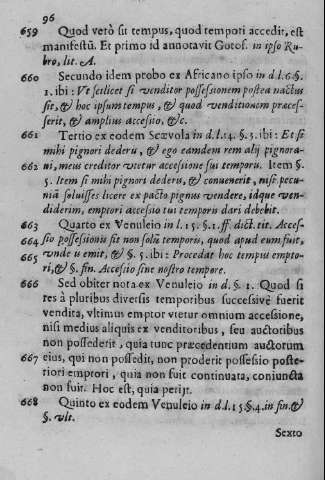 96
659 Quod verò sit tempus, quod tempori accedit, est
manifestũ. Et primo id annotavit Gotof. in ipso Ru-
bro, lit. A.
660 Secundo idem probo ex Africano ipso in d.l.6.§.
1. ibi: Vt scilicet si venditor possessionem postea nactus
sit, & hoc ipsum tempus, & quod venditionem præces-
serit, & amplius accessio, &c.
661 Tertio ex eodem Scævola in d.l.14. §. 3. ibi: Et si
mihi pignori dederu, & ego eamdem rem alij pignora-
662 ui, meus creditor vtetur accessione tui temporis. Item §.
5. Item si mihi pignori dederu, & conuenerit, nisi pecu-
niã soluisses licere ex pacto pignus vendere, idque ven-
diderim, emptori accessio tui temporis dari debebit.
663 Quarto ex Venuleio in l. 15. §. 1. ff. dict. tit. Acces-
664 sio possessionis sit non solũ temporis, quod apud eum fuit,
665 vnde u emit, & §. 5. ibi: Procedat hoc tempus empto-
ri, & §. fin. Accessio sine nostro tempore.
666 Sed obiter nota ex Venuleio in d. §. 1. Quod si
res à pluribus diversis temporibus successivè fuerit
vendita, vltimus emptor vtetur omnium accessione,
nisi medius aliquis ex venditoribus, seu auctoribus
non possederit, quia tunc præcedentium auctorum
667 eius, qui non possedit, non proderit possessio poste-
riori emptori, quia non fuit continuata, coniuncta
non fuit. Hoc est, quia perijt.
668 Quinto ex eodem Venuleio in d.l.15.§.4. in fin. &
§. vlt.
Sexto